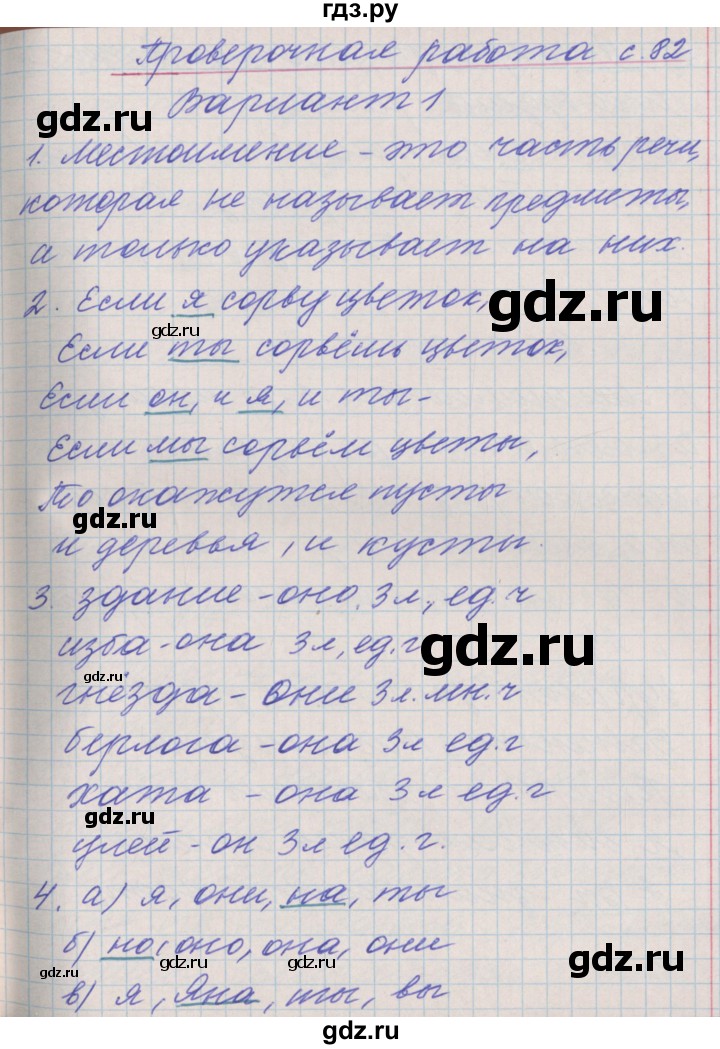 гдз.ру
Проверочная работа с. 82
Вариант 1
gdz.ru
1. Местоимение - это часть речи,
которая не называет предметы,
а только указывает на них.
2. Если я сорву цветок,
gdz.ru
gdz.ru
Если ты сорвёшь цветок,
Если он, и я, и ты -
Если мы сорвём цветы,
То окажутся пусты
gdz.ru
и деревья, и кусты.
3. здание - оно. 3 л., ед. ч
изба - она 3 л, ед. ч
gdz.ru
gdz.ru
гнёзда - они 3 л. мн. ч
берлога - она 3 л ед. ч
хата - она 3 л ед. ч
gdz.ru
улей - он 3 л ед. ч.
4. а) я, они, на, ты
б) но, оно, она, они
gdz.ru
gdz.ru
gdz.ru
gdz.ru
в) я, Яна, ты, вы
gdz.ru